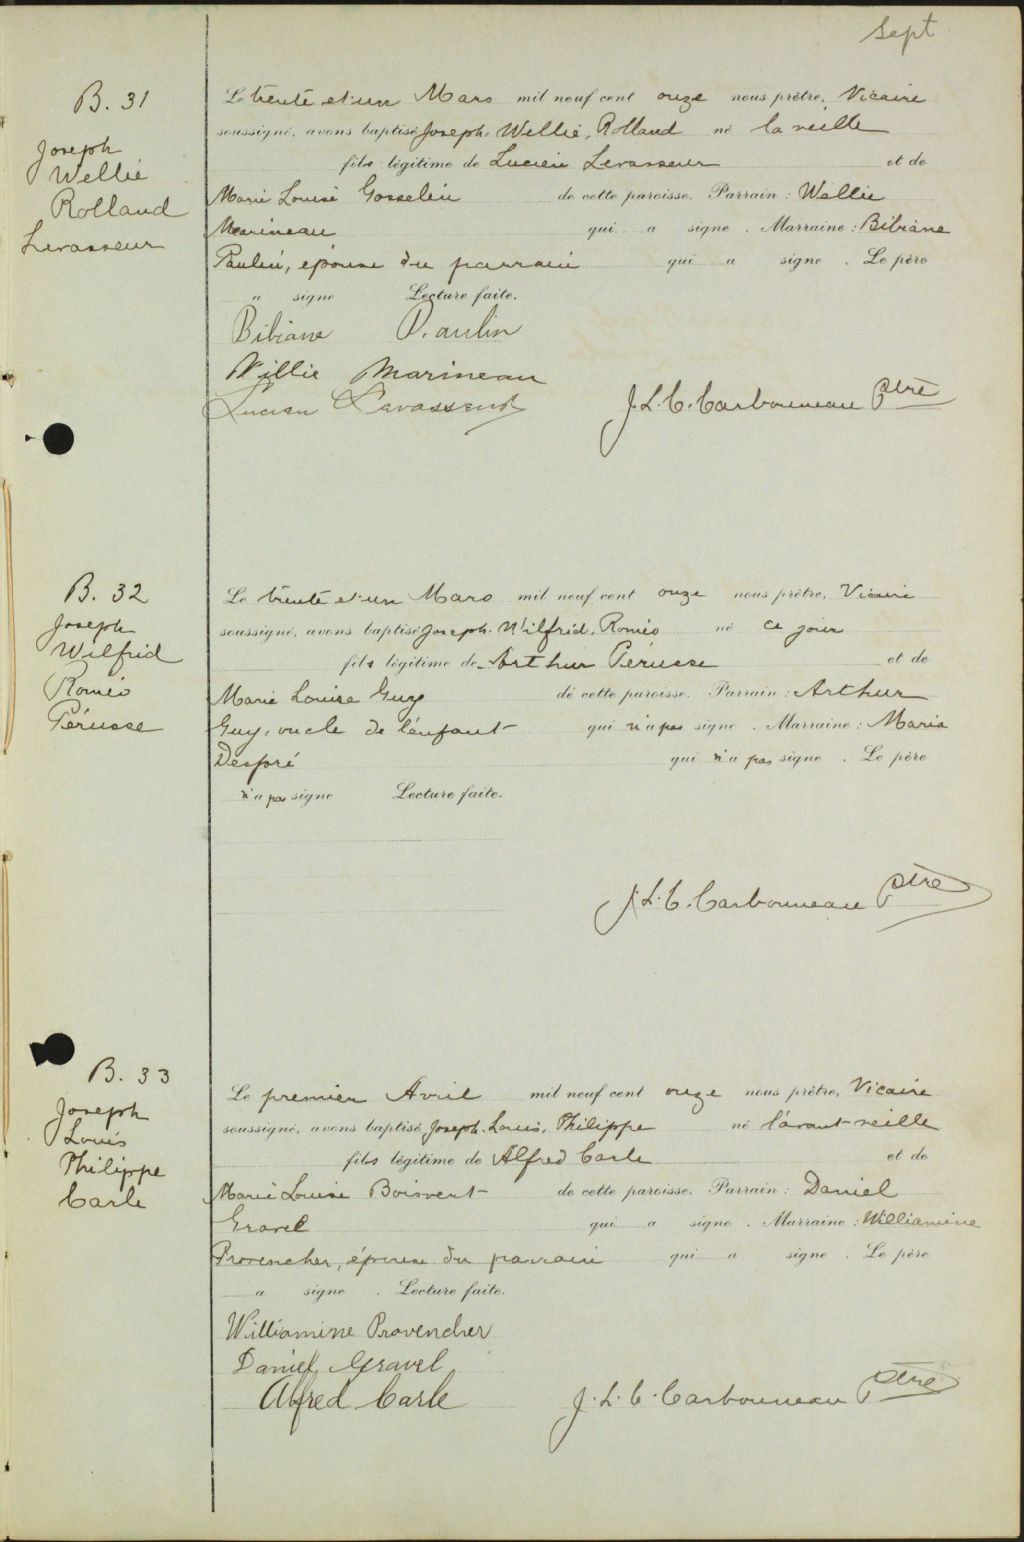 Sept
B. 31
Joseph
Wellié
Rolland
Levasseur
Le trente et un Mars mil neuf cent onze nous prêtre, Vicaire
soussigné, avons baptisé Joseph, Wellié, Rolland né la veille
fils légitime de Lucien Levasseur et de
Marie Louise Gosselin de cette paroisse. Parrain : Wellie
Marineau qui a signé. Marraine : Bibiane
Paulin, épouse du parrain qui a signé. Le père
a signé Lecture faite.
Bibiane Paulin
Willie Marineau
Lucien Levasseur
J. L. C. Carbonneau Ptre
B. 32
Joseph
Wilfrid
Roméo
Pérusse
Le trente et un Mars mil neuf cent onze nous prêtre, Vicaire
soussigné, avons baptisé Joseph, Wilfrid, Roméo né ce jour
fils légitime de Arthur Pérusse et de
Marie Louise Guy de cette paroisse. Parrain : Arthur
Guy, oncle de l'enfant qui n'a pas signé. Marraine : Maria
Desforé qui n'a pas signé. Le père
n'a pas signé Lecture faite.
J. L. C. Carbonneau Ptre
B. 33
Joseph
Louis
Philippe
Carle
Le premier Avril mil neuf cent onze nous prêtre, Vicaire
soussigné, avons baptisé Joseph, Louis, Philippe né l'avant-veille
fils légitime de Alfred Carle et de
Marie Louise Boisvert de cette paroisse. Parrain : Daniel
Gravel qui a signé. Marraine : Williamine
Provencher, épouse du parrain qui a signé. Le père
a signé. Lecture faite.
Williamine Provencher
Daniel Gravel
Alfred Carle
J. L. C. Carbonneau Ptre